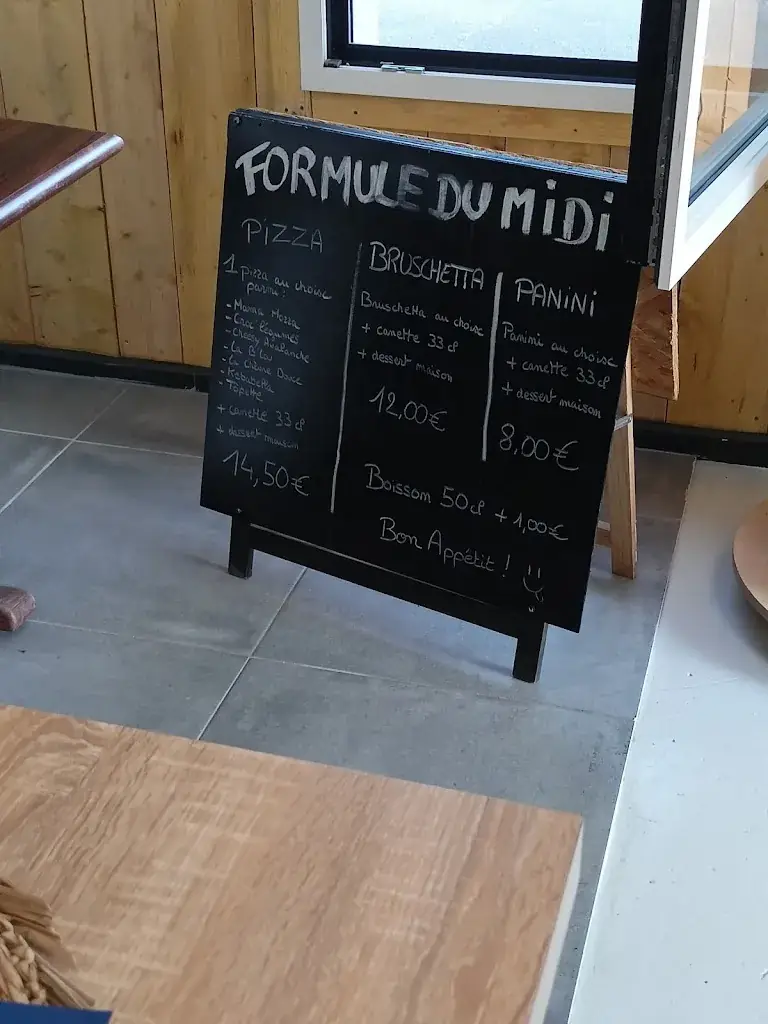 FORMULE DU MIDI
PIZZA
1 Pizza au choix
parmi :
- Mama Mozza
- Croc légumes
- Cheesy Avalanche
- La B'lou
- La Chèvre Douce
- Kebabella
- Topette
+ canette 33 cl
+ dessert maison
14,50€
BRUSCHETTA
Bruschetta au choix
+ canette 33 cl
+ dessert maison
12,00€
PANINI
Panini au choix
+ canette 33 cl
+ dessert maison
8,00€
Boisson 50 cl + 1,00€
Bon Appétit !